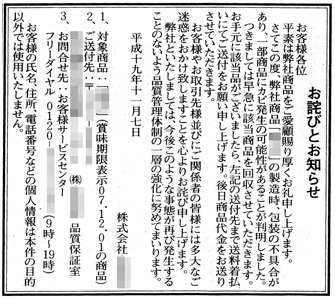 お詫びとお知らせ
お客様各位
平素は弊社商品をご愛顧賜り厚くお礼申し上げます。
さてこの度、弊社商品「」の製造時、包装の不具合が
あり、一部商品にカビ発生の可能性があることが判明しました。
つきましては早急に該当商品を回収させていただきます。
お手元に該当品がございましたら、左記の送付先まで送料着払
いにてご送付をお願い申し上げます。後日商品代金をお送り
させていただきます。
お客様やお取引先様並びにご関係者の皆様には多大なご
迷惑をおかけ致しますことを心よりお詫び申し上げます。
弊社といたしましては、今後このような事態が再び発生する
ことのないよう品質管理体制の一層の強化に努めてまいります。
平成十九年十一月七日
株式会社
1、対象商品:「」(賞味期限表示07.12.01の商品)
2、ご送付先:〒
(株) 品質保証室
3、お問合せ先:お客様サービスセンター
フリーダイヤル 0120-(9時~19時)
お客様の氏名、住所、電話番号などの個人情報は本件の目的
以外では使用いたしません。